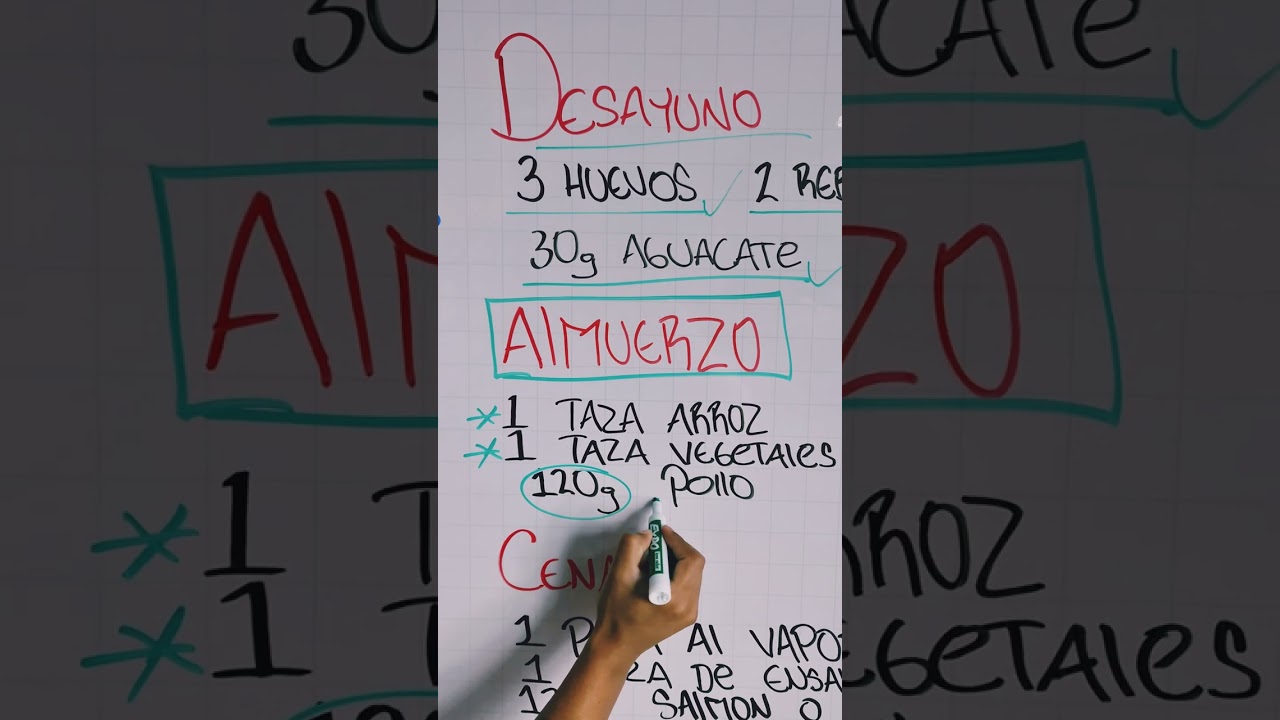 DESAYUNO
3 HUEVOS 2
30g AGUACATE
AlMUERZO
*1 TAZA ARROZ
*1 TAZA VEGETAlES
120g Pollo
CENA
1 Al VAPOR
1 DE
SAlMON O